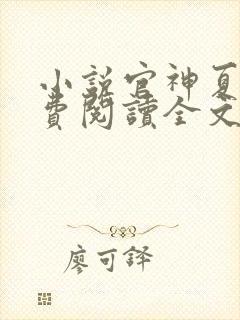 小說官神夏
費閱讀全文
廖可鐸